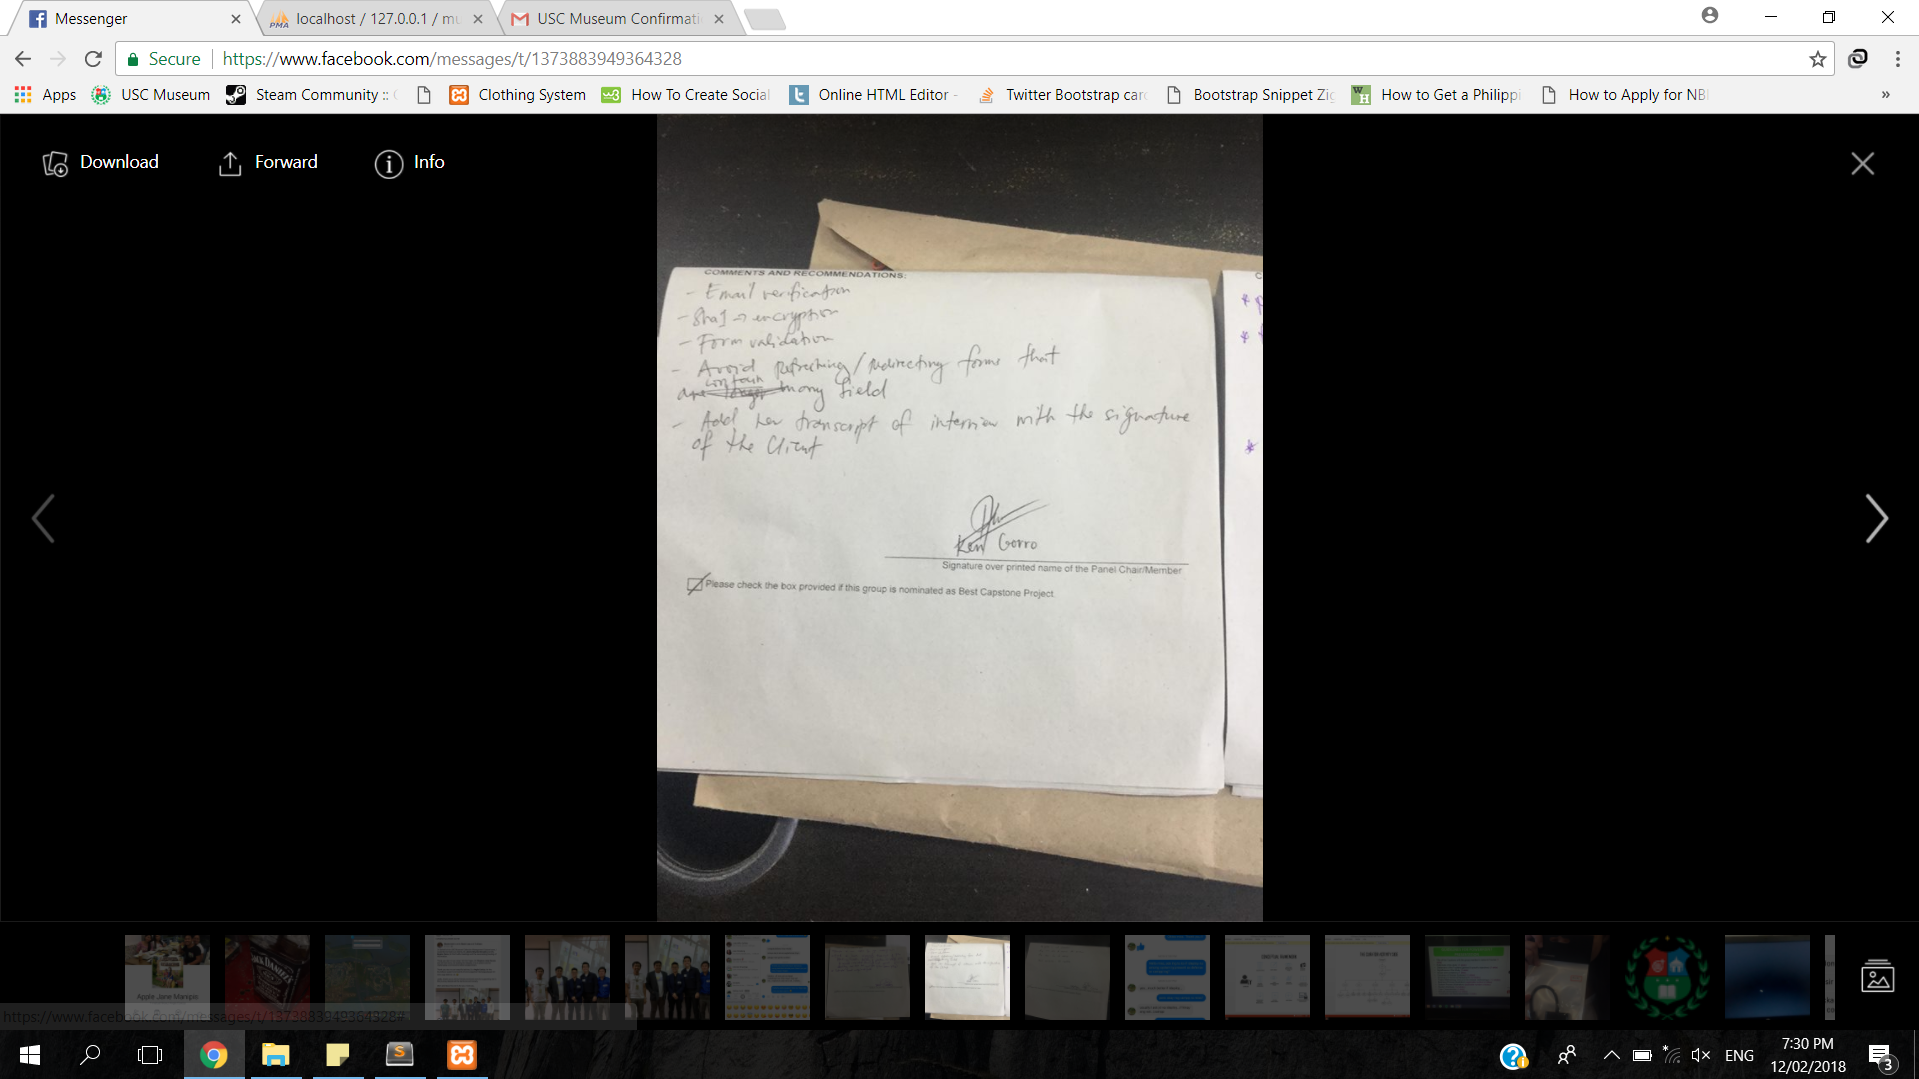 Messenger
localhost / 127.0.0.1 / mu
USC Museum Confirmati
Secure
https://www.facebook.com/messages/t/1373883949364328
Apps
USC Museum
Steam Community ::
Clothing System
How To Create Social
Online HTML Editor -
Twitter Bootstrap card
Bootstrap Snippet Zig
How to Get a Philippi
How to Apply for NBI
»
Download
Forward
Info
COMMENTS AND RECOMMENDATIONS:
- Email verification
- Sha1 → encryption
- Form validation
- Avoid refreshing/redirecting forms that
contain
are longer many field
- Add new transcript of interview with the signature
of the Client
Ken Gorro
Signature over printed name of the Panel Chair/Member
Please check the box provided if this group is nominated as Best Capstone Project
Apple Jane Manipis
JACK DANIEL'S
https://www.facebook.com/messages/t/1373883949364328#
ENG
7:30 PM
12/02/2018
3